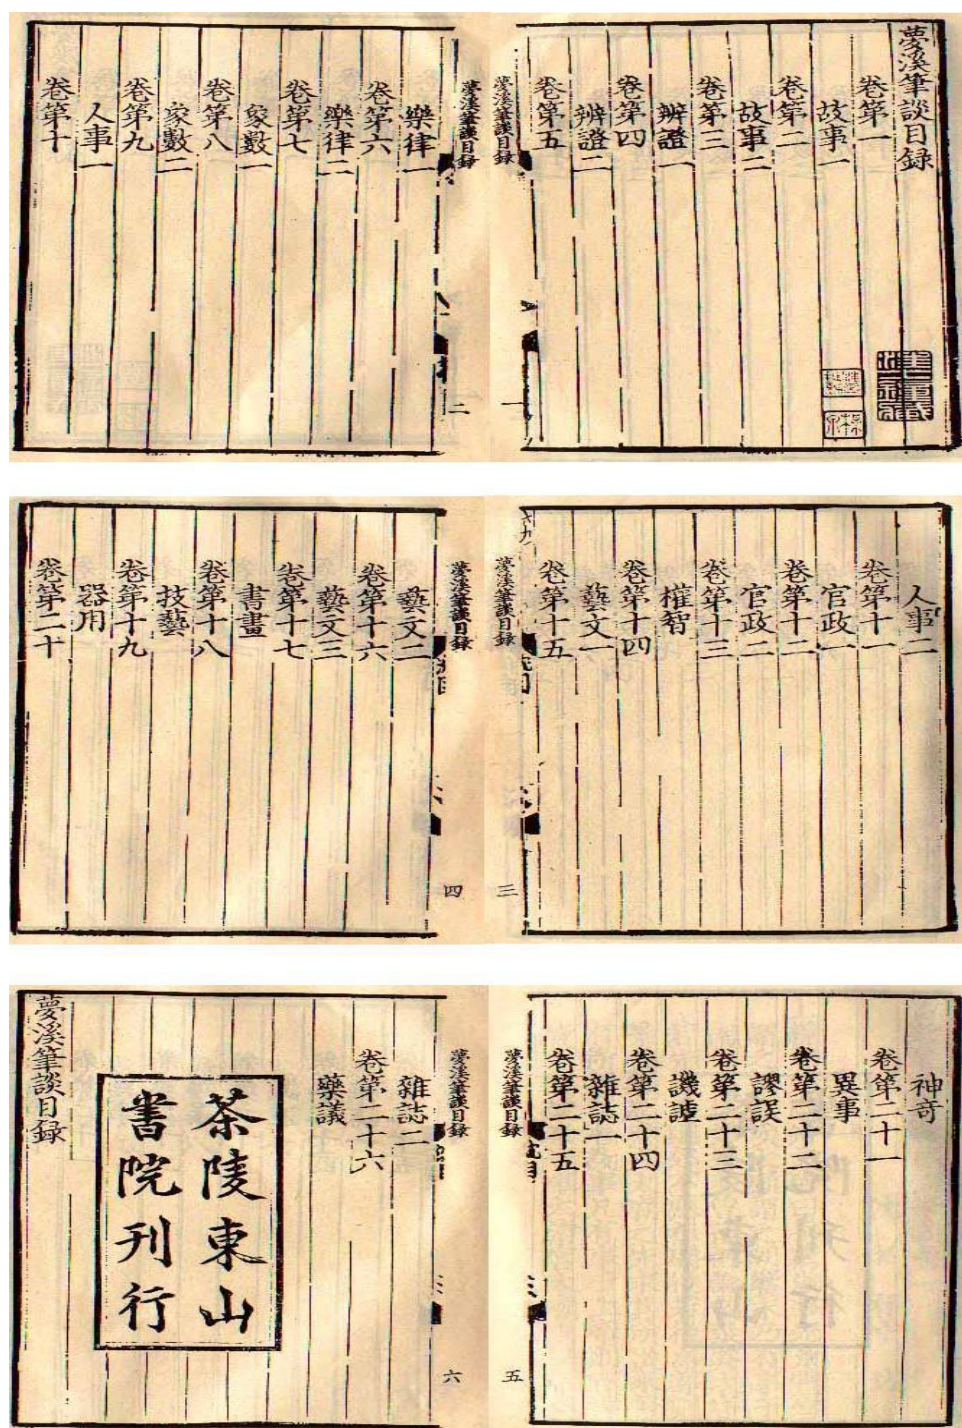 夢溪筆談目録
卷第一
故事一
卷第二
故事二
卷第三
辨證一
卷第四
辨證二
卷第五
夢溪筆談目録
一
夢溪筆談目録
二
樂律一
卷第六
樂律二
卷第七
象數一
卷第八
象數二
卷第九
人事一
卷第十
人事二
卷第十一
官政一
卷第十二
官政二
卷第十三
權智
卷第十四
藝文一
卷第十五
夢溪筆談目録
三
夢溪筆談目録
四
藝文二
卷第十六
藝文三
卷第十七
書畫
卷第十八
技藝
卷第十九
器用
卷第二十
神奇
卷第二十一
異事
卷第二十二
謬誤
卷第二十三
譏謔
卷第二十四
雜誌一
卷第二十五
夢溪筆談目録
五
夢溪筆談目録
六
雜誌二
卷第二十六
藥議
茶陵東山
書院刊行
夢溪筆談目録